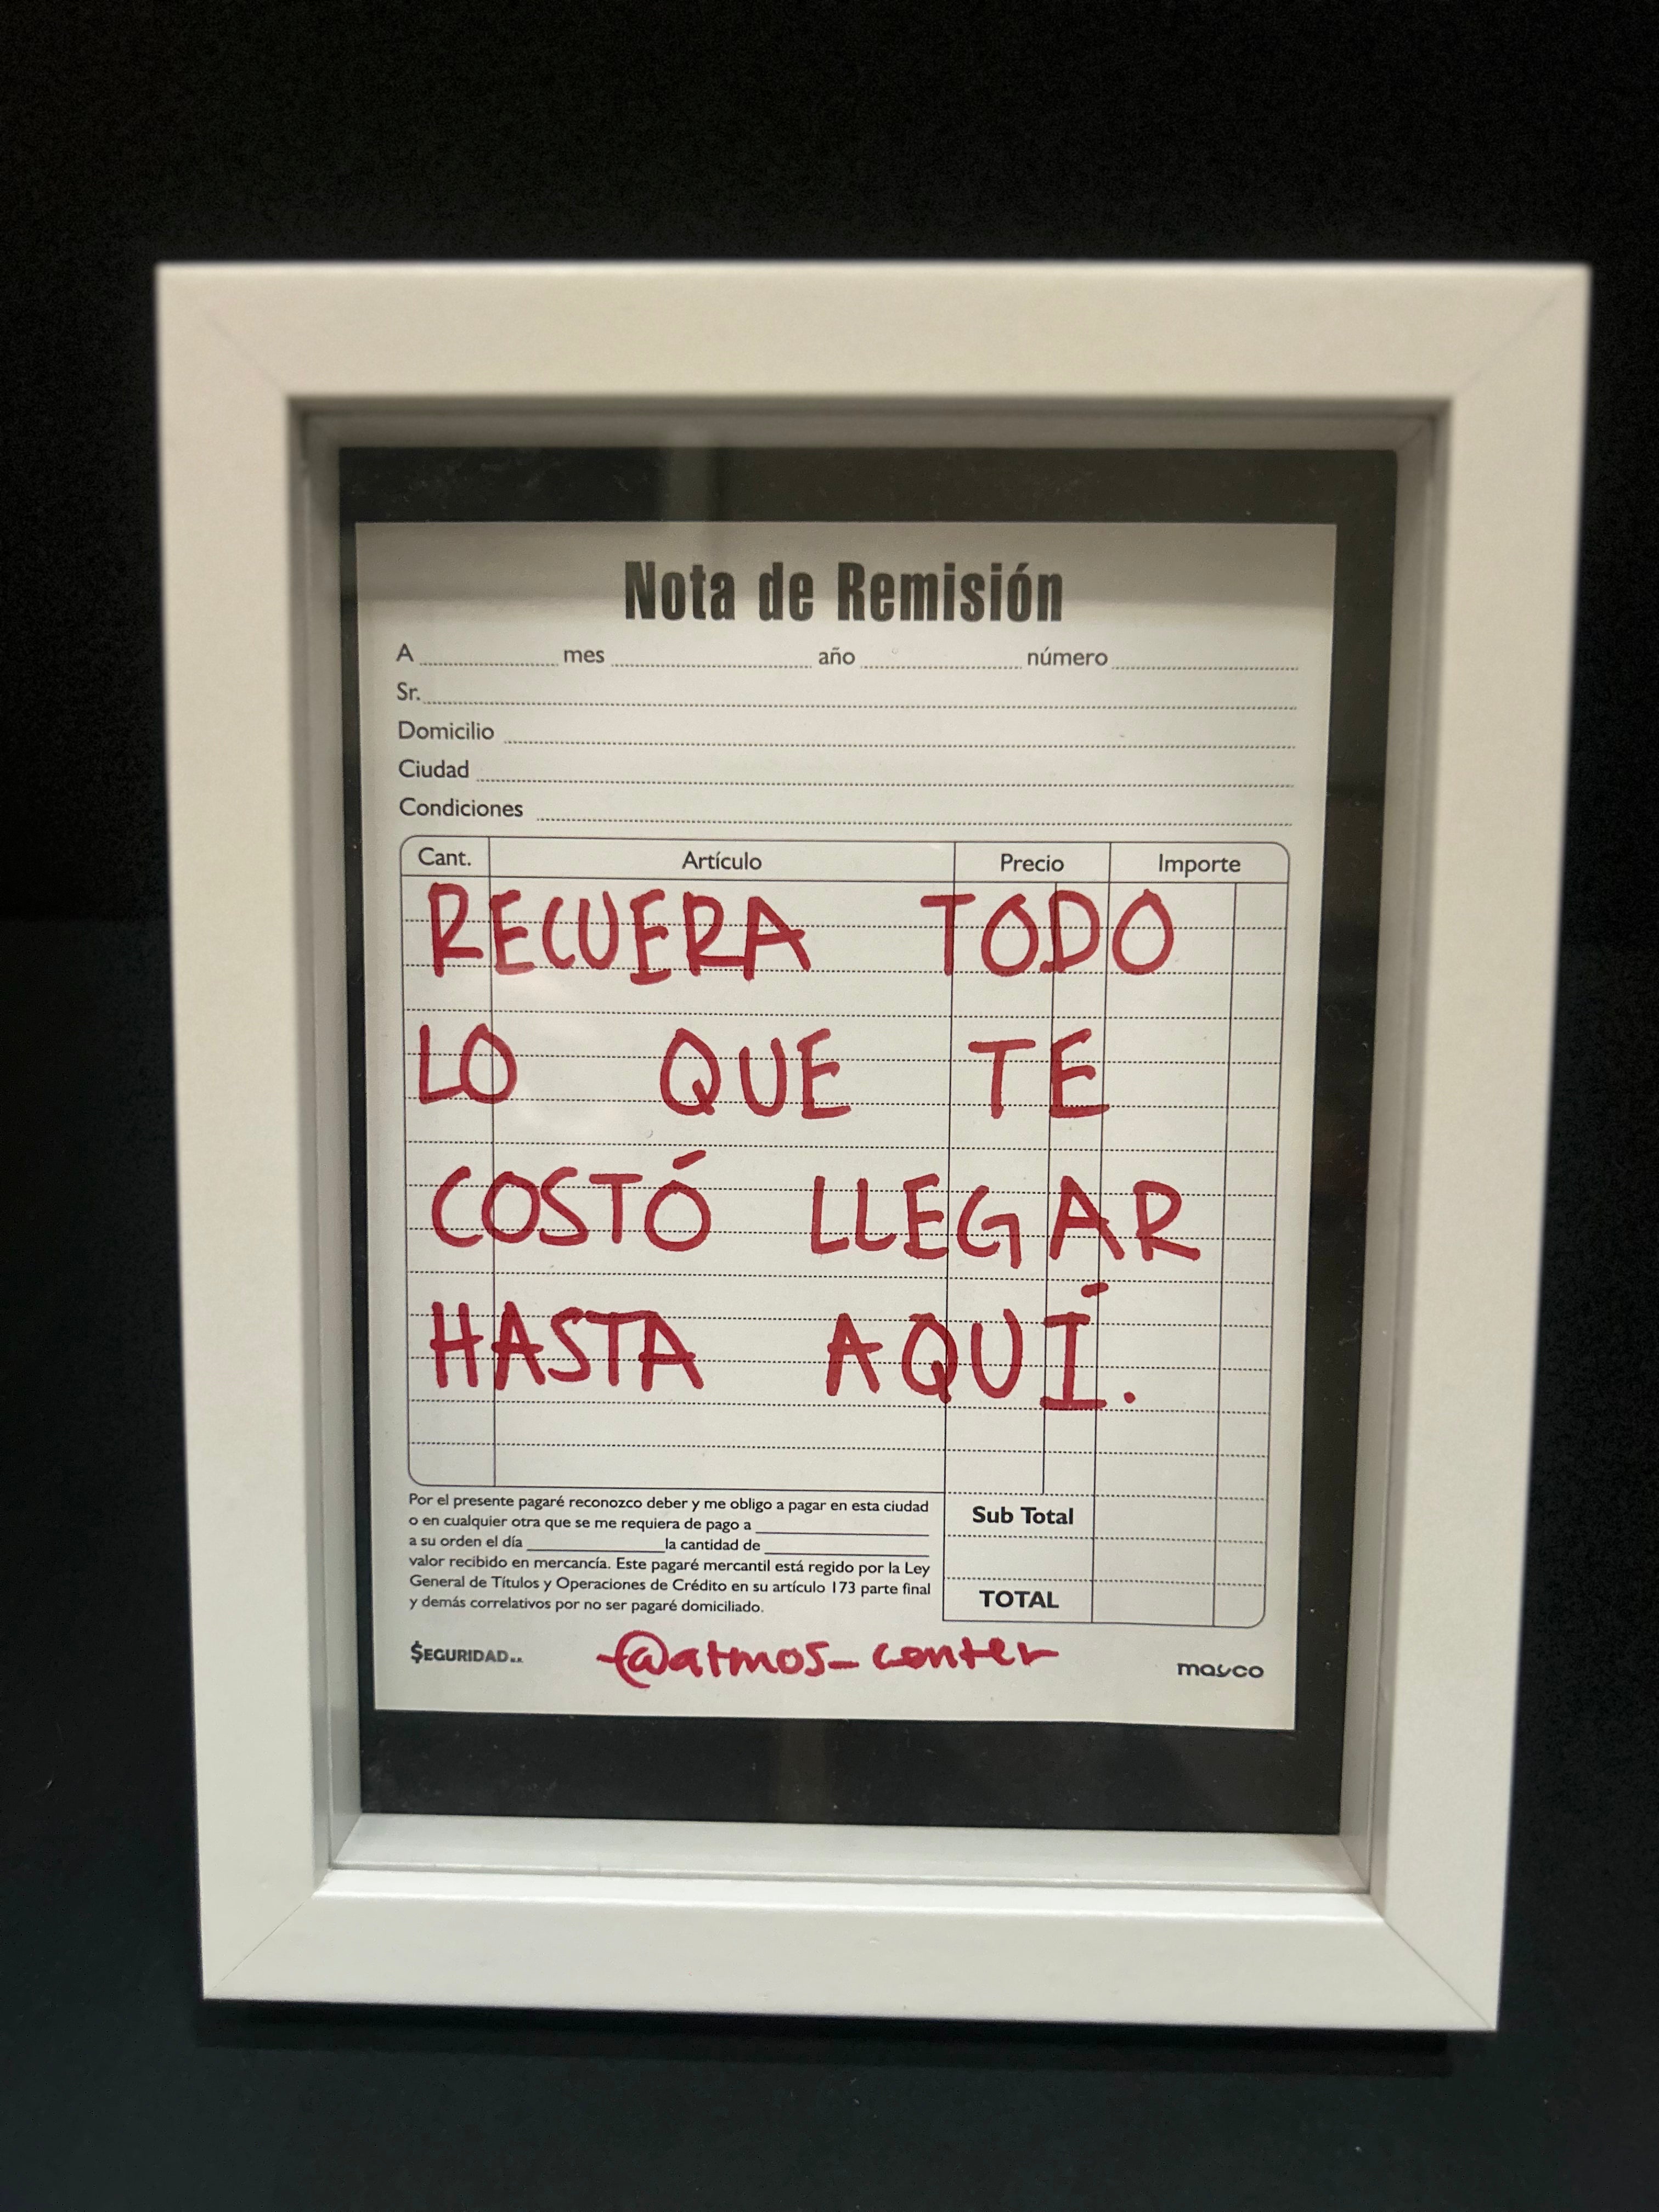 Nota de Remisión
A mes año número
Sr.
Domicilio
Ciudad
Condiciones
Cant. Artículo Precio Importe
RECUERA TODO
LO QUE TE
COSTÓ LLEGAR
HASTA AQUÍ.
Por el presente pagaré reconozco deber y me obligo a pagar en esta ciudad
o en cualquier otra que se me requiera de pago a
a su orden el día la cantidad de
valor recibido en mercancía. Este pagaré mercantil está regido por la Ley
General de Títulos y Operaciones de Crédito en su artículo 173 parte final
y demás correlativos por no ser pagaré domiciliado.
Sub Total
TOTAL
$EGURIDAD
@atmos_conter
masco